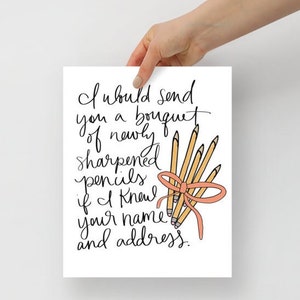 I would send
you a bouquet
of newly
sharpened
pencils
if I knew
your name
and address.